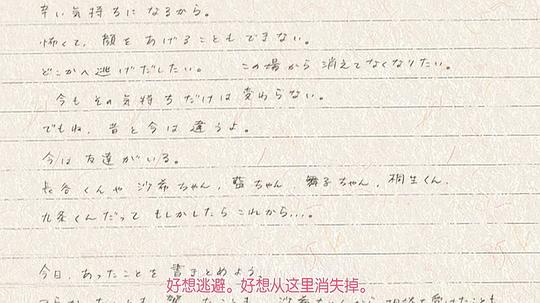 辛い気持ちになるから。
怖くて、顔をあげることもできない。
どこかへ逃げだしたい。 この場から消えてなくなりたい。
今もその気持ちだけは変わらない。
でもね、昔と今は違うよ。
今は友達がいる。
長谷くんや沙希ちゃん、藍ちゃん、舞子ちゃん、桐生くん、
九条くんだってもしかしたらこれから…。
今日、あったことを書きまとめよう。
好想逃避。好想从这里消失掉。